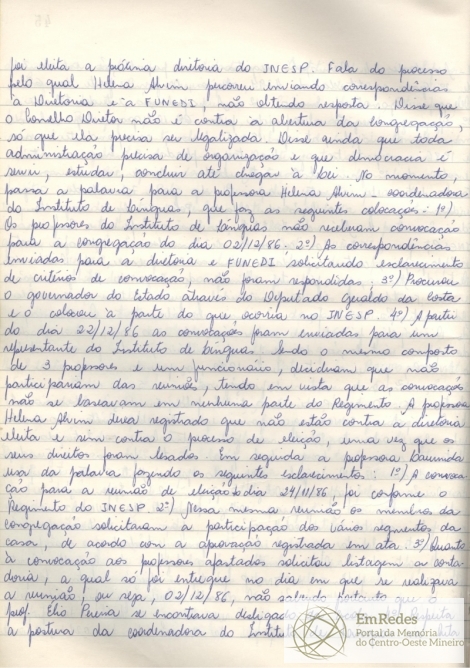 foi eleita a próxima diretoria do INESP. Fala do processo
pelo qual Helena Alvim percorreu enviando correspondências
à Diretoria e à FUNEDI, não obtendo resposta. Disse que
o Conselho Diretor não é contra a abertura da congregação,
só que ela precisa ser legalizada. Disse ainda que toda
administração precisa de organização e que democracia é
servir, estudar, concluir até chegar à lei. No momento,
passa a palavra para a professora Helena Alvim - coordenadora
do Instituto de Línguas, que faz as seguintes colocações: 1º)
Os professores do Instituto de Línguas não receberam convocação
para a congregação do dia 02/12/86. 2º) As correspondências
enviadas para a diretoria e FUNEDI, solicitando esclarecimento
de critérios de convocação, não foram respondidas, 3º) Procurou
o governador do Estado através do Deputado Geraldo da Costa
e o colocou à parte do que, ocorria no INESP. 4º) A partir
do dia 22/12/86 as convocações foram enviadas para um
representante do Instituto de Línguas. Sendo o mesmo composto
de 3 professores e um funcionário, decidiram que não
participariam das reuniões, tendo em vista que as convocações
não se baseavam em nenhuma parte do Regimento. A professora
Helena Alvim deixa registrado que não estão contra a diretoria
eleita e sim contra o processo de eleição, uma vez que os
seus direitos foram lesados. Em segunda a professora
usa da palavra fazendo os seguintes esclarecimentos: 1º) A convoca-
ção para a reunião de eleição do dia 24/11/86, foi conforme o
Regimento do INESP. 2º) Nessa mesma reunião os membros da
congregação solicitaram a participação dos vários segmentos da
casa, de acordo com a aprovação registrada em ata. 3º) Quanto
à convocação aos professores afastados solicitou listagem a conta-
doria, a qual só foi entregue no dia em que se realizava
a reunião, ou seja, 02/12/86, não sabendo portanto que o
prof. Elio Pereira se encontrava desligado
a postura da coordenadora do Instituto
EmRedes
Portal da Memória
do Centro-Oeste Mineiro